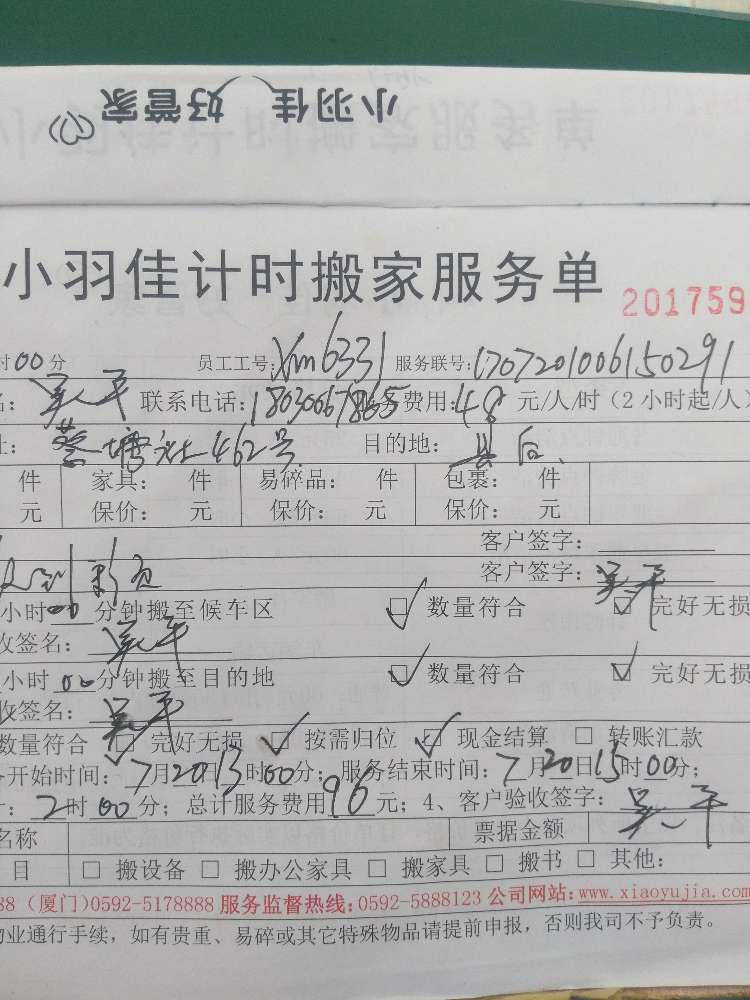 小羽佳 好管家
小羽佳计时搬家服务单 201759
时00分 员工工号:Xm6331 服务联号:1707201006150291
名: 吴平 联系电话:18030067865 服务费用:48 元/人/时(2小时起/人)
址: 蔡塘社462号 目的地: 县后
件 家具: 件 易碎品: 件 包裹: 件
元 保价: 元 保价: 元 保价: 元
客户签字:
客户签字: 吴平
小时00分钟搬至候车区 ☑ 数量符合 ☑ 完好无损
收签名: 吴平
小时00分钟搬至目的地 ☑ 数量符合 ☑ 完好无损
收签名: 吴平
数量符合 ☑ 完好无损 ☑ 按需归位 ☑ 现金结算 □ 转账汇款
务开始时间:7月20日13时00分; 服务结束时间:7月20日15时00分;
计:2时00分; 总计服务费用96元; 4、客户验收签字: 吴平
名称 票据金额
目 □ 搬设备 □ 搬办公家具 □ 搬家具 □ 搬书 □ 其他:
88 (厦门)0592-5178888 服务监督热线:0592-5888123 公司网站:www.xiaoyujia.com
物业通行手续,如有贵重、易碎或其它特殊物品请提前申报,否则我司不予负责。